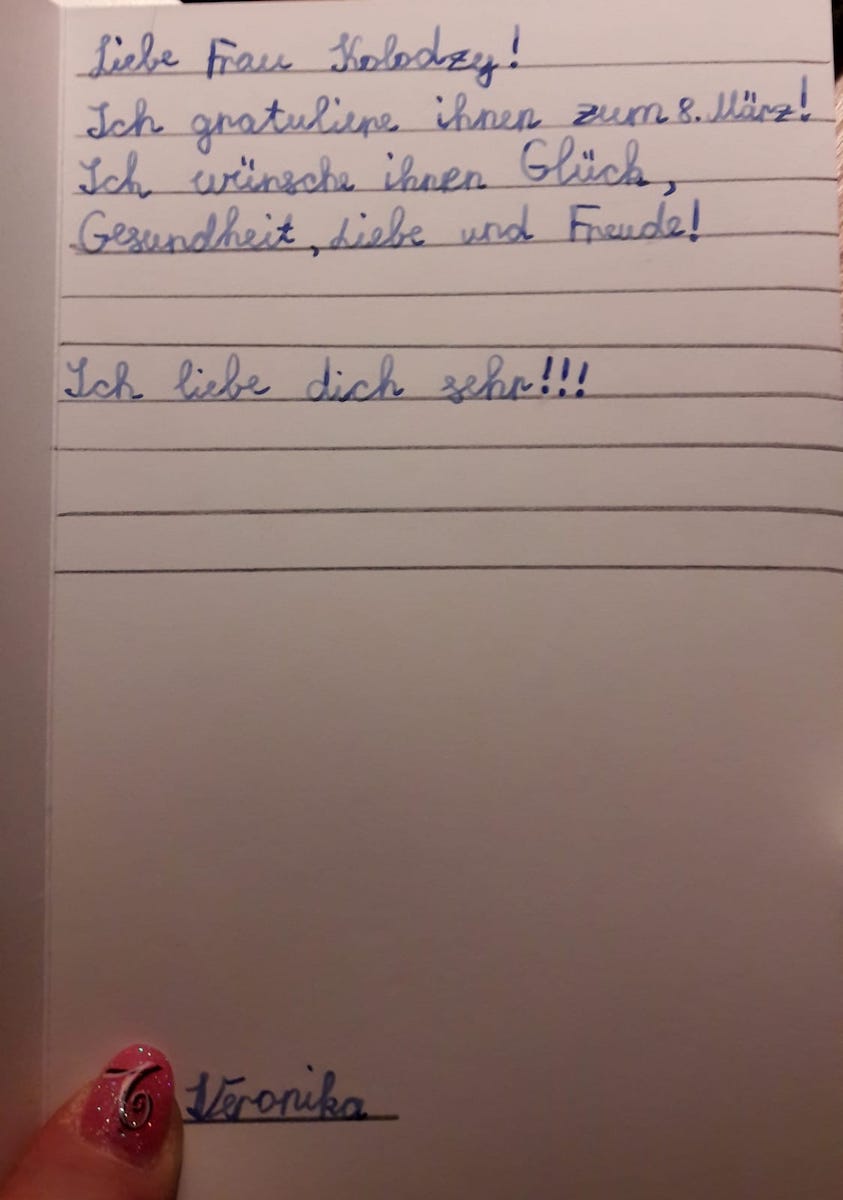 Liebe Frau Kolodzy!
Ich gratuliere ihnen zum 8. März!
Ich wünsche ihnen Glück,
Gesundheit, Liebe und Freude!
Ich liebe dich sehr!!!
Veronika